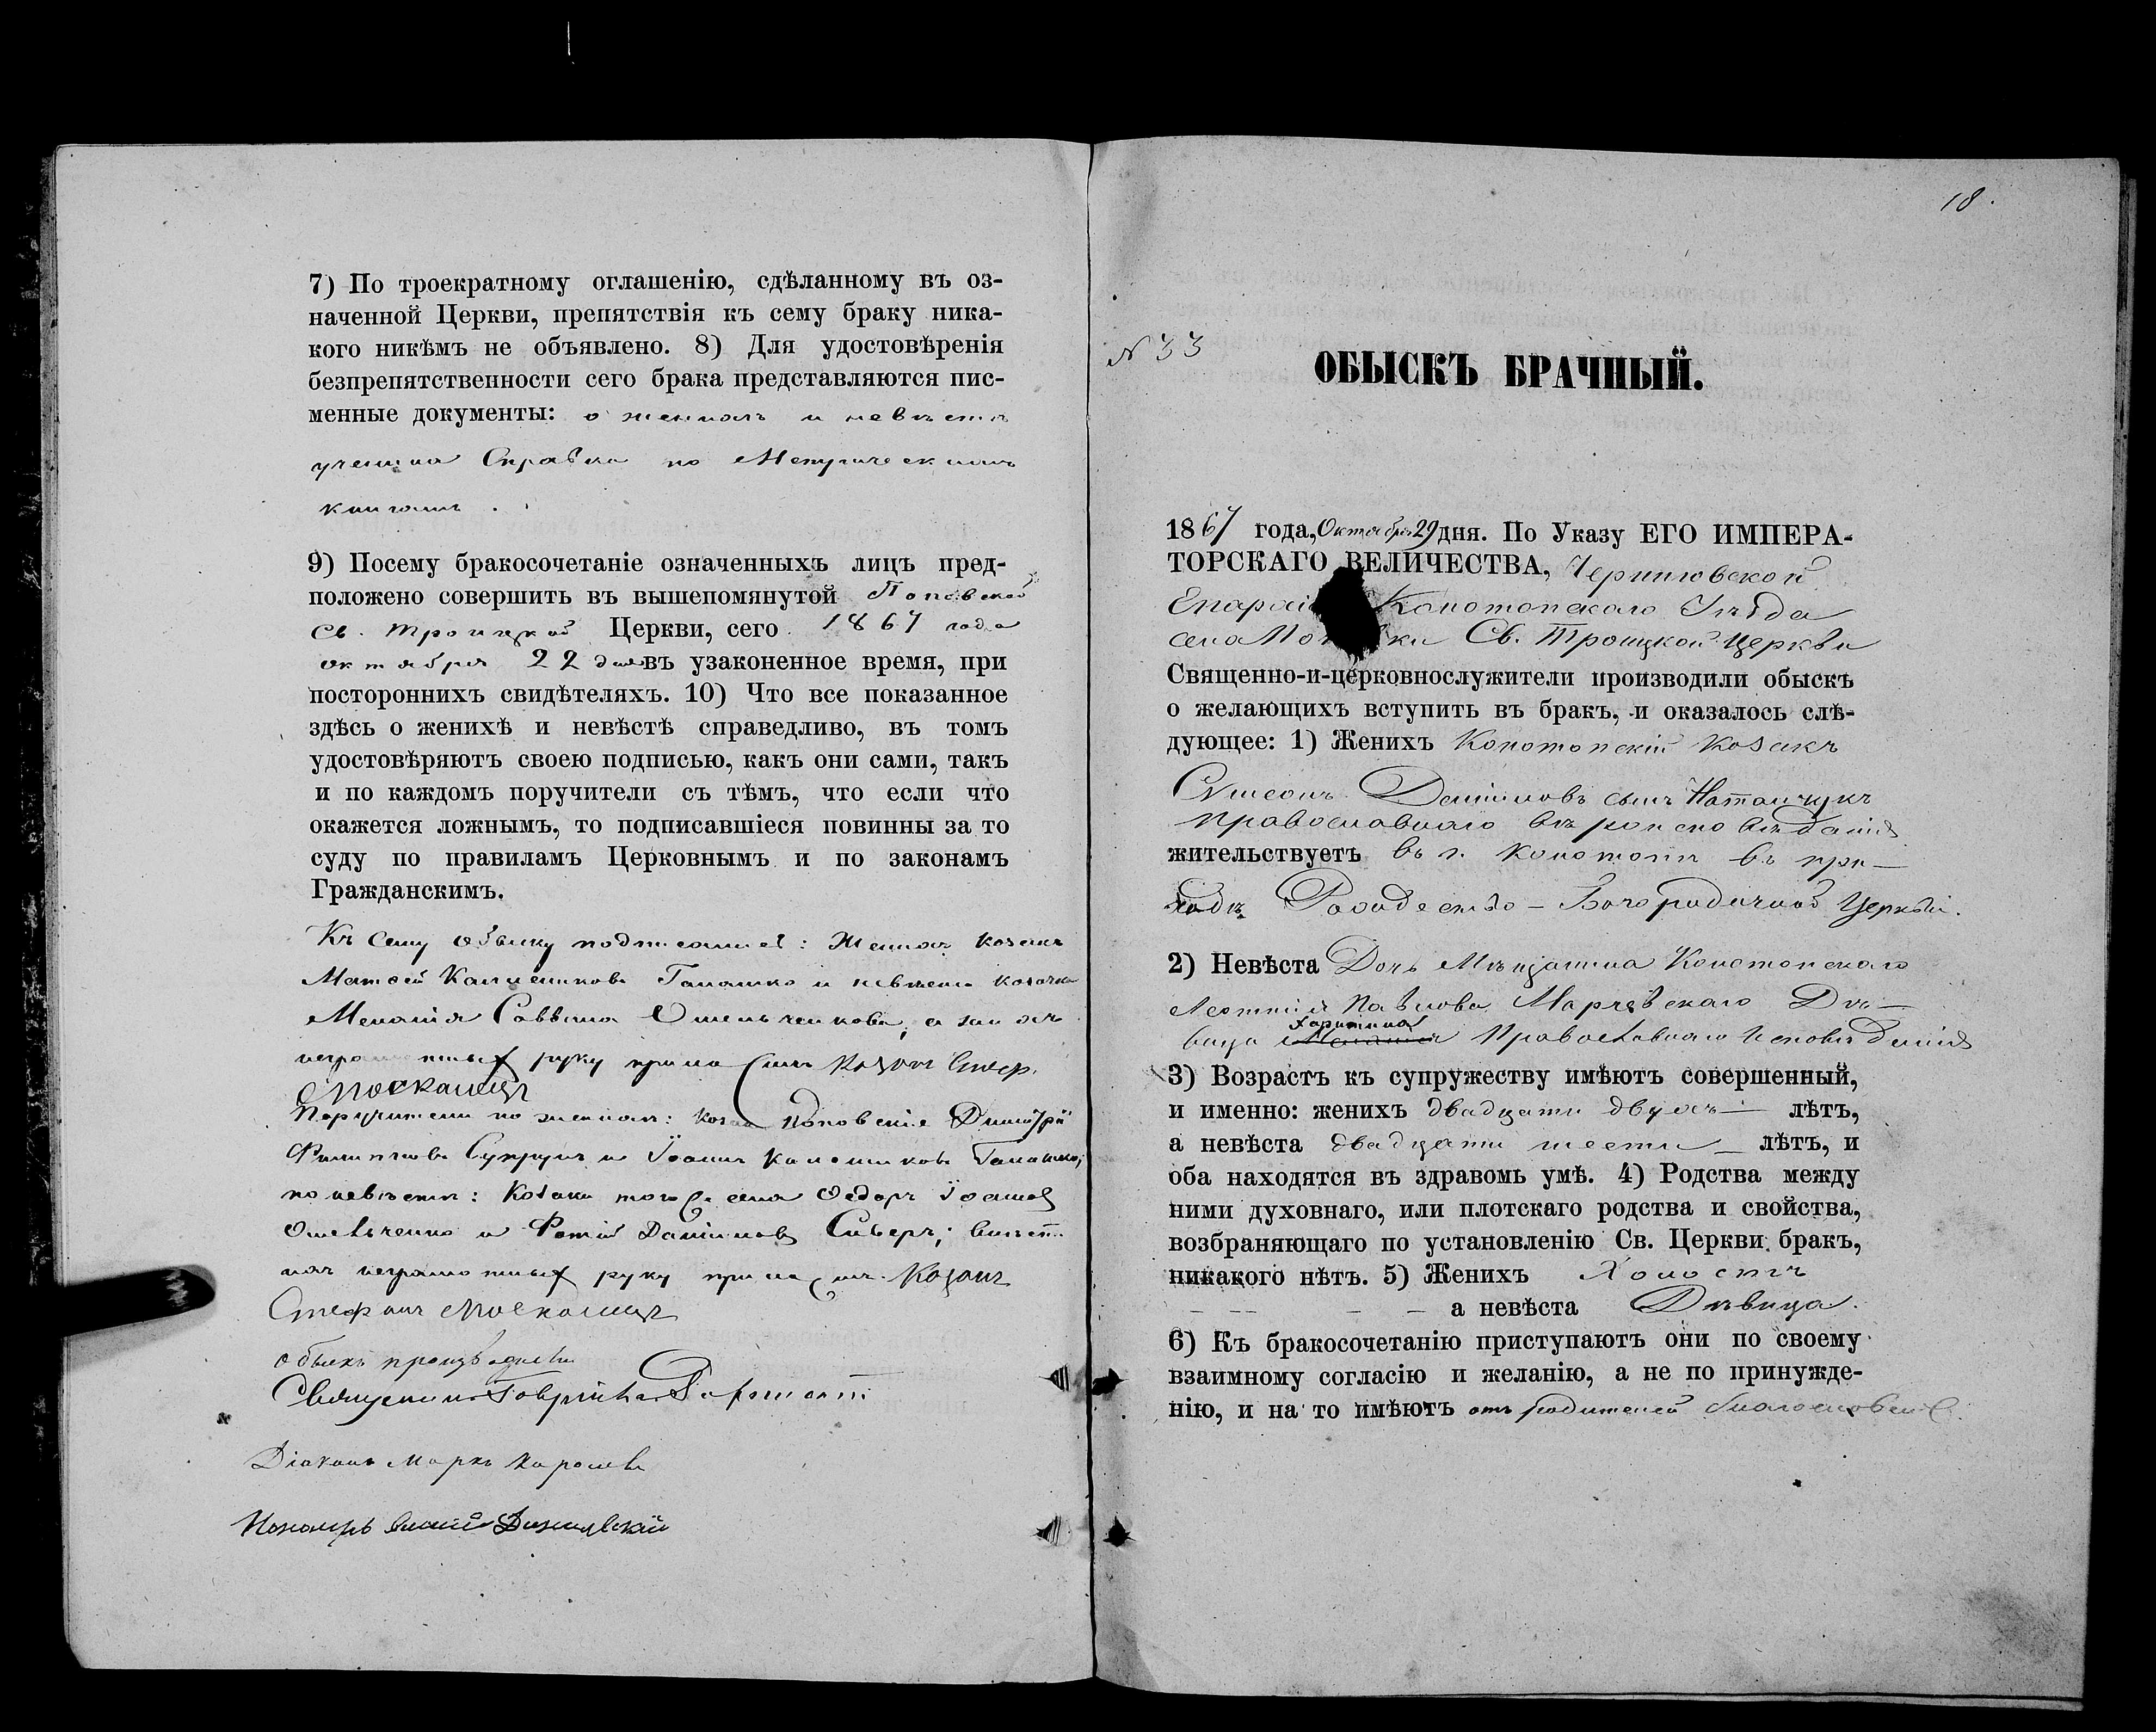 7) По троекратному оглашенію, сдѣланному въ оз-
наченной Церкви, препятствія къ сему браку ника-
кого никѣмъ не объявлено. 8) Для удостовѣренія
безпрепятственности сего брака представляются пис-
менные документы: о женихѣ и невѣстѣ
учинена Справка по Метрическимъ
книгамъ.
9) Посему бракосочетаніе означенныхъ лицъ пред-
положено совершить въ вышепомянутой Поповской
Св. Троицкой Церкви, сего 1867 года
октября 22 дня въ узаконенное время, при
постороннихъ свидѣтеляхъ. 10) Что все показанное
здѣсь о женихѣ и невѣстѣ справедливо, въ томъ
удостовѣряютъ своею подписью, какъ они сами, такъ
и по каждомъ поручители съ тѣмъ, что если что
окажется ложнымъ, то подписавшіеся повинны за то
суду по правиламъ Церковнымъ и по законамъ
Гражданскимъ.
Къ сему обыску подписались: Женихъ козакъ
Матфей Галашко и невѣста козачка
Меланія Саввина Омельченкова, а за нихъ
неграмотныхъ руку приложилъ Козакъ Стеф.
Москалецъ
Поручители по женихѣ: Поповскіе Димитрій
Филиповъ Супрунъ и Іоаннъ Галашко,
по невѣстѣ: Козаки того села Федоръ Іоановъ
Омельченко и Фотій Даніиловъ Сиверъ; вмѣсто
нихъ неграмотныхъ руку приложилъ Козакъ
Стефанъ Москалецъ
обыскъ производили
Священникъ Гавріилъ
Діаконъ Маркъ
Пономарь
18.
N 33
ОБЫСКЪ БРАЧНЫЙ.
1867 года, Октября 29 дня. По Указу ЕГО ИМПЕРА-
ТОРСКАГО ВЕЛИЧЕСТВА, Черниговской
Епархіи Конотопскаго Уѣзда
села Поповки Св. Троицкой Церкви
Священно-и-церковнослужители производили обыскъ
о желающихъ вступить въ бракъ, и оказалось слѣ-
дующее: 1) Женихъ Конотопскій Козакъ
Сѵмеонъ сынъ
православнаго вѣроисповѣданія
жительствуетъ въ г. Конотопѣ въ при-
ходѣ Рождество-Богородичной Церкви.
2) Невѣста Дочь Мѣщанина Конотопскаго
Леонтія Павлова Дѣ-
вица Харитина Православнаго Исповѣданія
3) Возрастъ къ супружеству имѣютъ совершенный,
и именно: женихъ двадцати двухъ лѣтъ,
а невѣста двадцати шести лѣтъ, и
оба находятся въ здравомь умѣ. 4) Родства между
ними духовнаго, или плотскаго родства и свойства,
возбраняющаго по установленію Св. Церкви бракъ,
никакого нѣтъ. 5) Женихъ Холостъ
а невѣста Дѣвица.
6) Къ бракосочетанію приступаютъ они по своему
взаимному согласію и желанію, а не по принужде-
нію, и на то имѣютъ отъ родителей благословеніе.